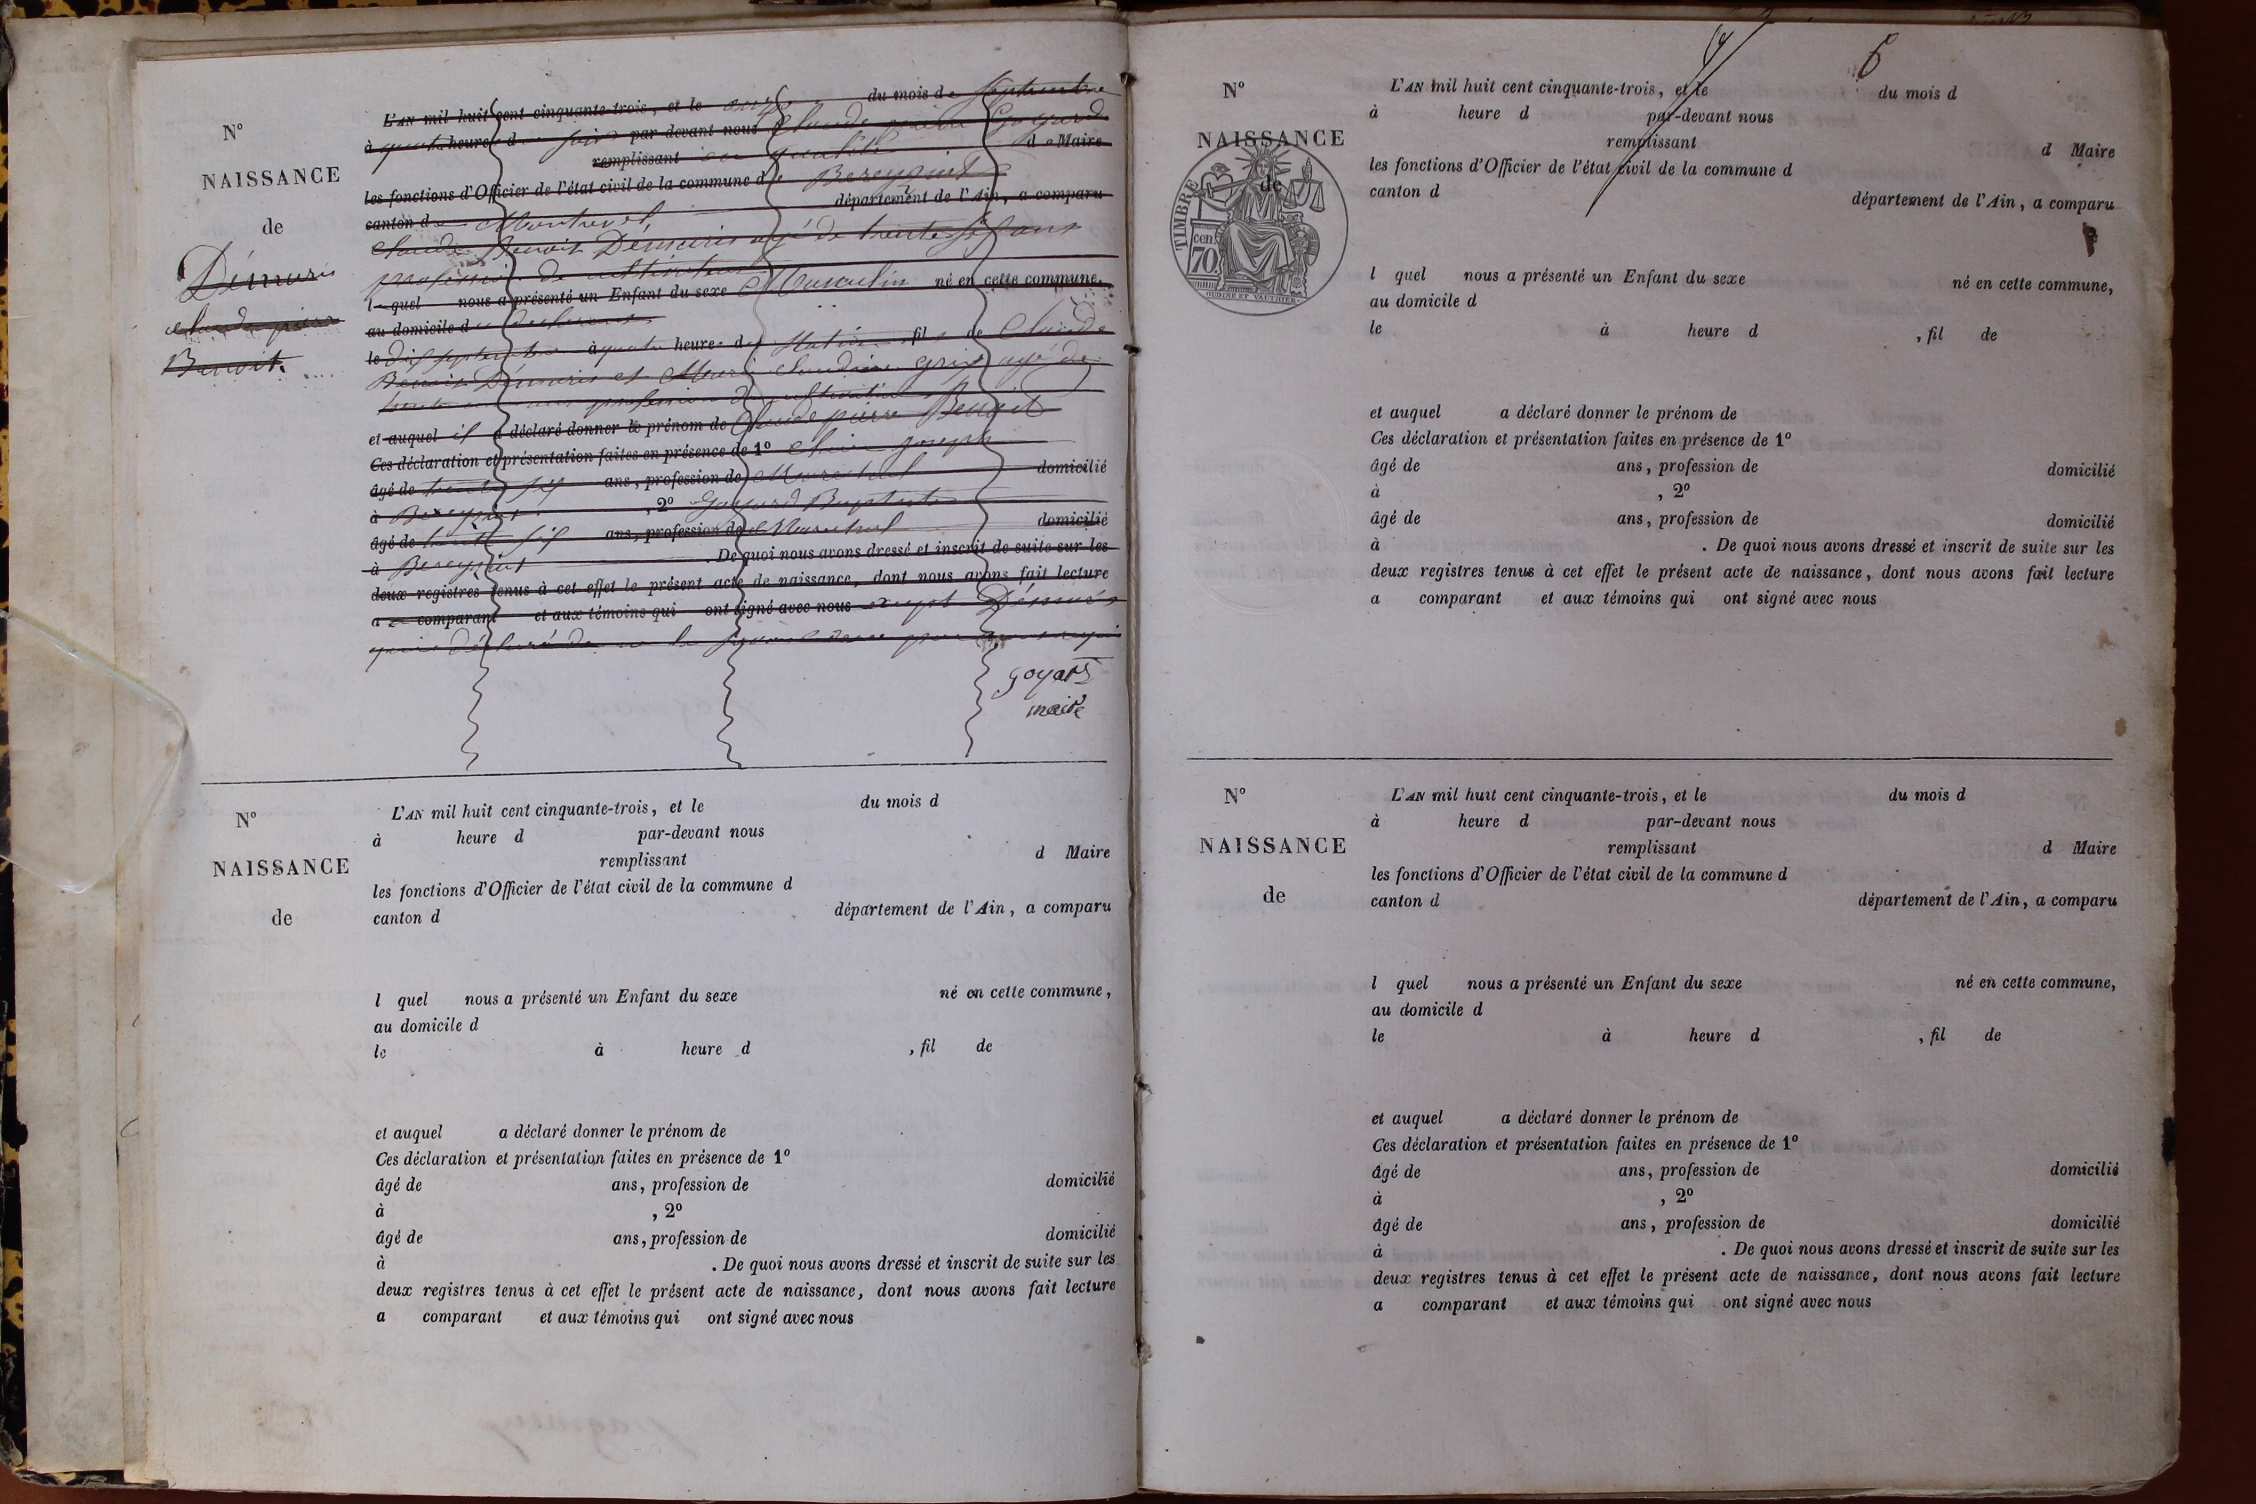 N°
NAISSANCE
de
Démuris
claude pierre
Benoit.
L'AN mil huit cent cinquante-trois, et le onze du mois de septembre
à quatre heure d soir par-devant nous Claude Goyard
remplissant en qualité de Maire
les fonctions d'Officier de l'état civil de la commune de Bereyziat
canton de Montrevel département de l'Ain, a comparu
claude Benoit Démuris agé de trente six ans
profession de cultivateur
l quel nous a présenté un Enfant du sexe Masculin né en cette commune,
au domicile d
le dix septembre à quatre heure d Matin, fil de Claude
Benoit Démuris et Marie claudine agé de
trente ans profession de
et auquel il a déclaré donner le prénom de Claude pierre Benoit
Ces déclaration et présentation faites en présence de 1° joseph
âgé de trente six ans, profession de Marechal domicilié
à Bereyziat, 2° Goyard Baptiste
âgé de trente six ans, profession de Marechal domicilié
à Bereyziat. De quoi nous avons dressé et inscrit de suite sur les
deux registres tenus à cet effet le présent acte de naissance, dont nous avons fait lecture
a comparant et aux témoins qui ont signé avec nous Démuris
qui a déclaré de ne le savoir
goyard
maire
N°
NAISSANCE
de
L'AN mil huit cent cinquante-trois, et le du mois d
à heure d par-devant nous
remplissant d Maire
les fonctions d'Officier de l'état civil de la commune d
canton d département de l'Ain, a comparu
l quel nous a présenté un Enfant du sexe né en cette commune,
au domicile d
le à heure d , fil de
et auquel a déclaré donner le prénom de
Ces déclaration et présentation faites en présence de 1°
âgé de ans, profession de domicilié
à , 2°
âgé de ans, profession de domicilié
à . De quoi nous avons dressé et inscrit de suite sur les
deux registres tenus à cet effet le présent acte de naissance, dont nous avons fait lecture
a comparant et aux témoins qui ont signé avec nous
6
N°
NAISSANCE
de
TIMBRE
70 cen.
OUDINE ET VAUTHIER
L'AN mil huit cent cinquante-trois, et le du mois d
à heure d par-devant nous
remplissant d Maire
les fonctions d'Officier de l'état civil de la commune d
canton d département de l'Ain, a comparu
l quel nous a présenté un Enfant du sexe né en cette commune,
au domicile d
le à heure d , fil de
et auquel a déclaré donner le prénom de
Ces déclaration et présentation faites en présence de 1°
âgé de ans, profession de domicilié
à , 2°
âgé de ans, profession de domicilié
à . De quoi nous avons dressé et inscrit de suite sur les
deux registres tenus à cet effet le présent acte de naissance, dont nous avons fait lecture
a comparant et aux témoins qui ont signé avec nous
N°
NAISSANCE
de
L'AN mil huit cent cinquante-trois, et le du mois d
à heure d par-devant nous
remplissant d Maire
les fonctions d'Officier de l'état civil de la commune d
canton d département de l'Ain, a comparu
l quel nous a présenté un Enfant du sexe né en cette commune,
au domicile d
le à heure d , fil de
et auquel a déclaré donner le prénom de
Ces déclaration et présentation faites en présence de 1°
âgé de ans, profession de domicilié
à , 2°
âgé de ans, profession de domicilié
à . De quoi nous avons dressé et inscrit de suite sur les
deux registres tenus à cet effet le présent acte de naissance, dont nous avons fait lecture
a comparant et aux témoins qui ont signé avec nous